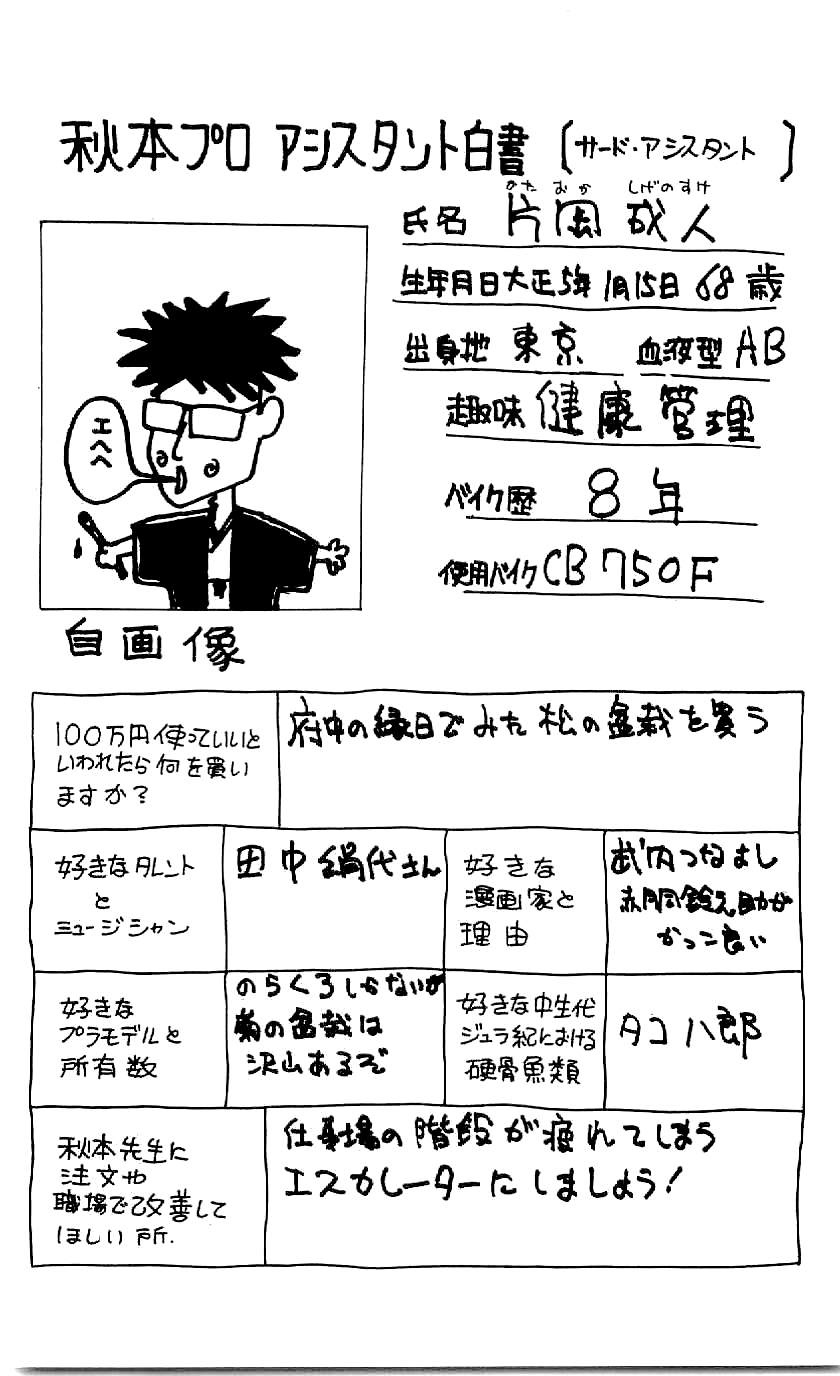 秋本プロ アシスタント白書 〔サード・アシスタント 〕
かた おか しげのすけ
氏名 片岡 成人
生年月日大正5年1月15日 68歳
出身地 東京 血液型 AB
趣味 健康管理
バイク歴 8年
使用バイク CB750F
エヘヘ
自画像
100万円使っていいと
いわれたら何を買い
ますか?
府中の縁日でみた松の盆栽を買う
好きなタレント
と
ミュージシャン
田中絹代さん
好きな
漫画家と
理由
武内つなよし
赤胴鈴之助が
かっこ良い
好きな
プラモデルと
所有数
のらくろしかないが
菊の盆栽は
沢山あるぞ
好きな中生代
ジュラ紀における
硬骨魚類
タコ八郎
秋本先生に
注文や
職場で改善して
ほしい所.
仕事場の階段が疲れてしまう
エスカレーターにしましょう!